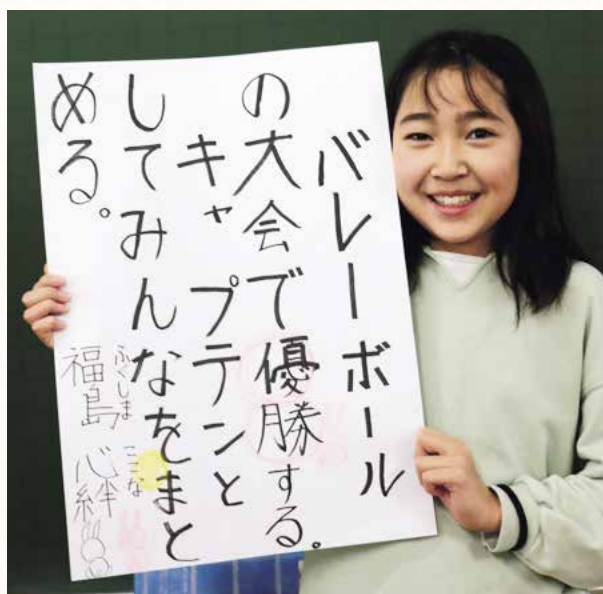 バレーボール
の大会で優勝する。
キャプテンと
してみんなをまと
める。
ふくしま ここな
福島 心絆